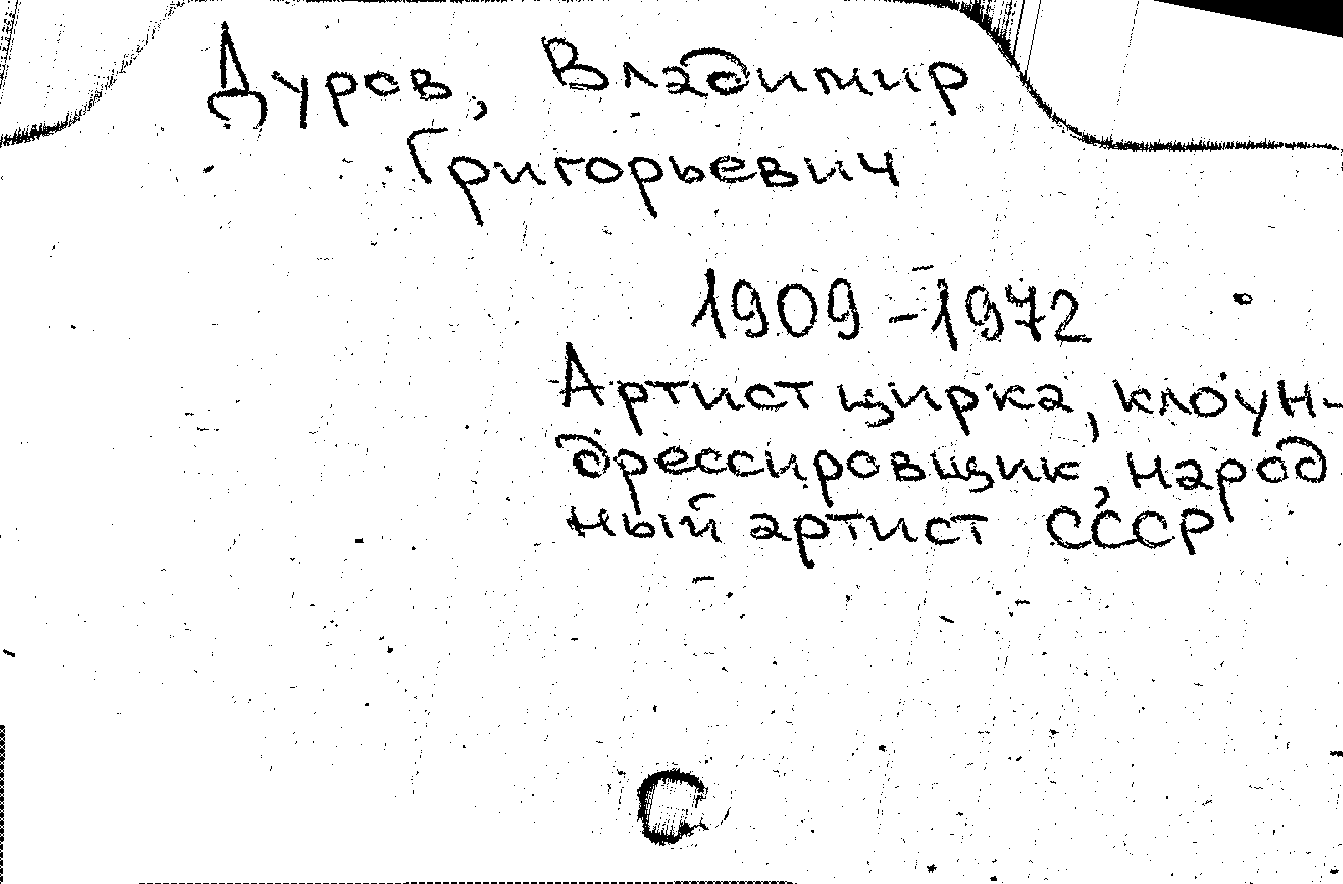 Дуров, Владимир
Григорьевич
1909-1972
Артист цирка, клоун-
дрессировщик, народ
ный артист СССР